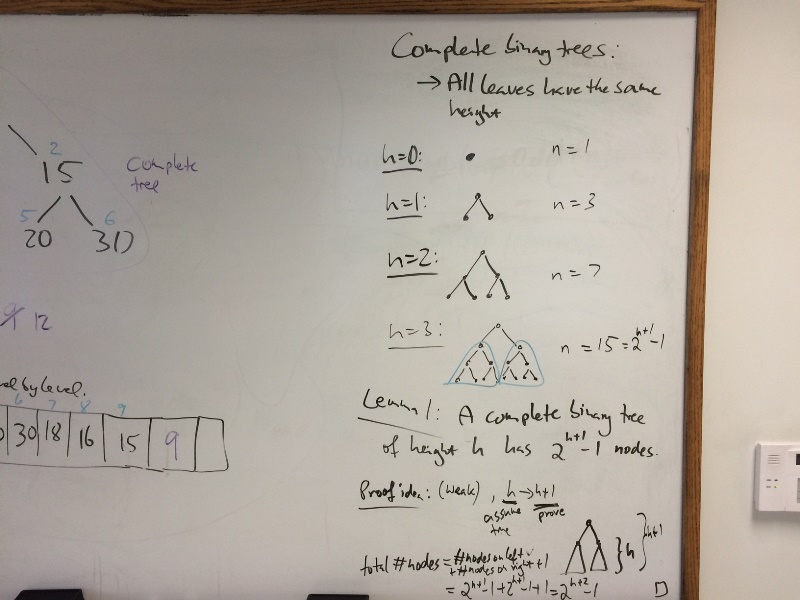 Complete binary trees:
→ All leaves have the same
height
h=0: n=1
h=1: n=3
h=2: n=7
h=3: n=15=2^h+1-1
Lemma 1: A complete binary tree
of height h has 2^h+1-1 nodes.
Proof idea: (weak), h→h+1
assume prove
true
} h } h+1
total # nodes = # nodes on left
+ # nodes on right + 1
= 2^h+1-1+2^h+1-1+1=2^h+2-1 □
2
15
Complete
tree
5 6
20 30
12
by level.
6 7 8 9
30 18 16 15 9